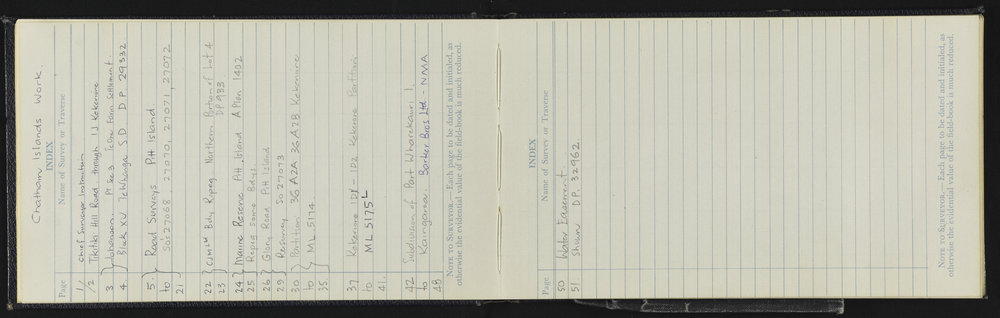 Chatham Islands Work.
INDEX
Page Name of Survey or Traverse
1/ Chief Surveyor Instruction
/2 Tikitiki Hill Road through 1J Kekerione
3 } Johanson. Pt Sec 3 Te One Farm Settlement.
4 Block XV Te Whanga S.D. D.P. 29332
5 } Road Surveys Pitt Island
to So's 27068, 27070, 27071, 27072
21
22 } Comlt Bdy Repeg Northern Portion of Lot 4
23 DP 933
24 Marine Reserve Pitt Island A Plan 1402
25 Repeg Some Bdys.
26 } Glory Road Pitt Island
29 Resurvey So 27073
30 } Partition 3G A2A 3G A2B Kekerione
to ML 5174
35
37 Kekerione 1D1 - 1D2 Kekerione Partition
to ML 5175L
41.
42 Subdivision of Part Wharekauri 1
to Kaingaroa. Barker Bros Ltd - NMA
48
NOTE TO SURVEYOR.—Each page to be dated and initialed, as
otherwise the evidential value of the field-book is much reduced.
INDEX
Page Name of Survey or Traverse
50 Water Easement
51 Shown D.P. 32962
NOTE TO SURVEYOR.—Each page to be dated and initialed, as
otherwise the evidential value of the field-book is much reduced.